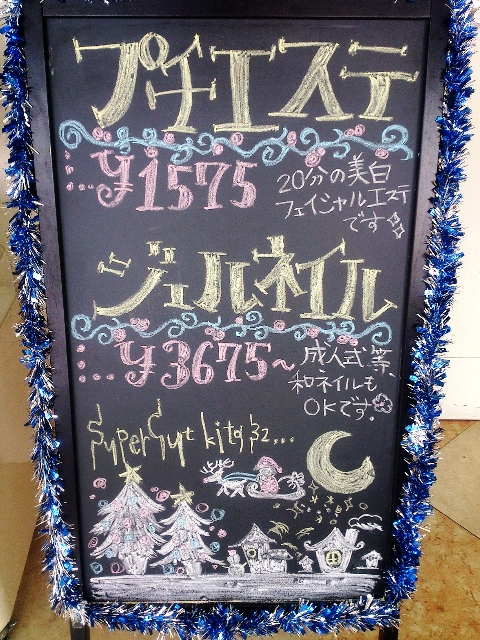 プチエステ
...¥1575
20分の美白
フェイシャルエステ
です
ジェルネイル
...¥3675~
成人式等、
和ネイルも
OKです。
SuperCut kita 32...